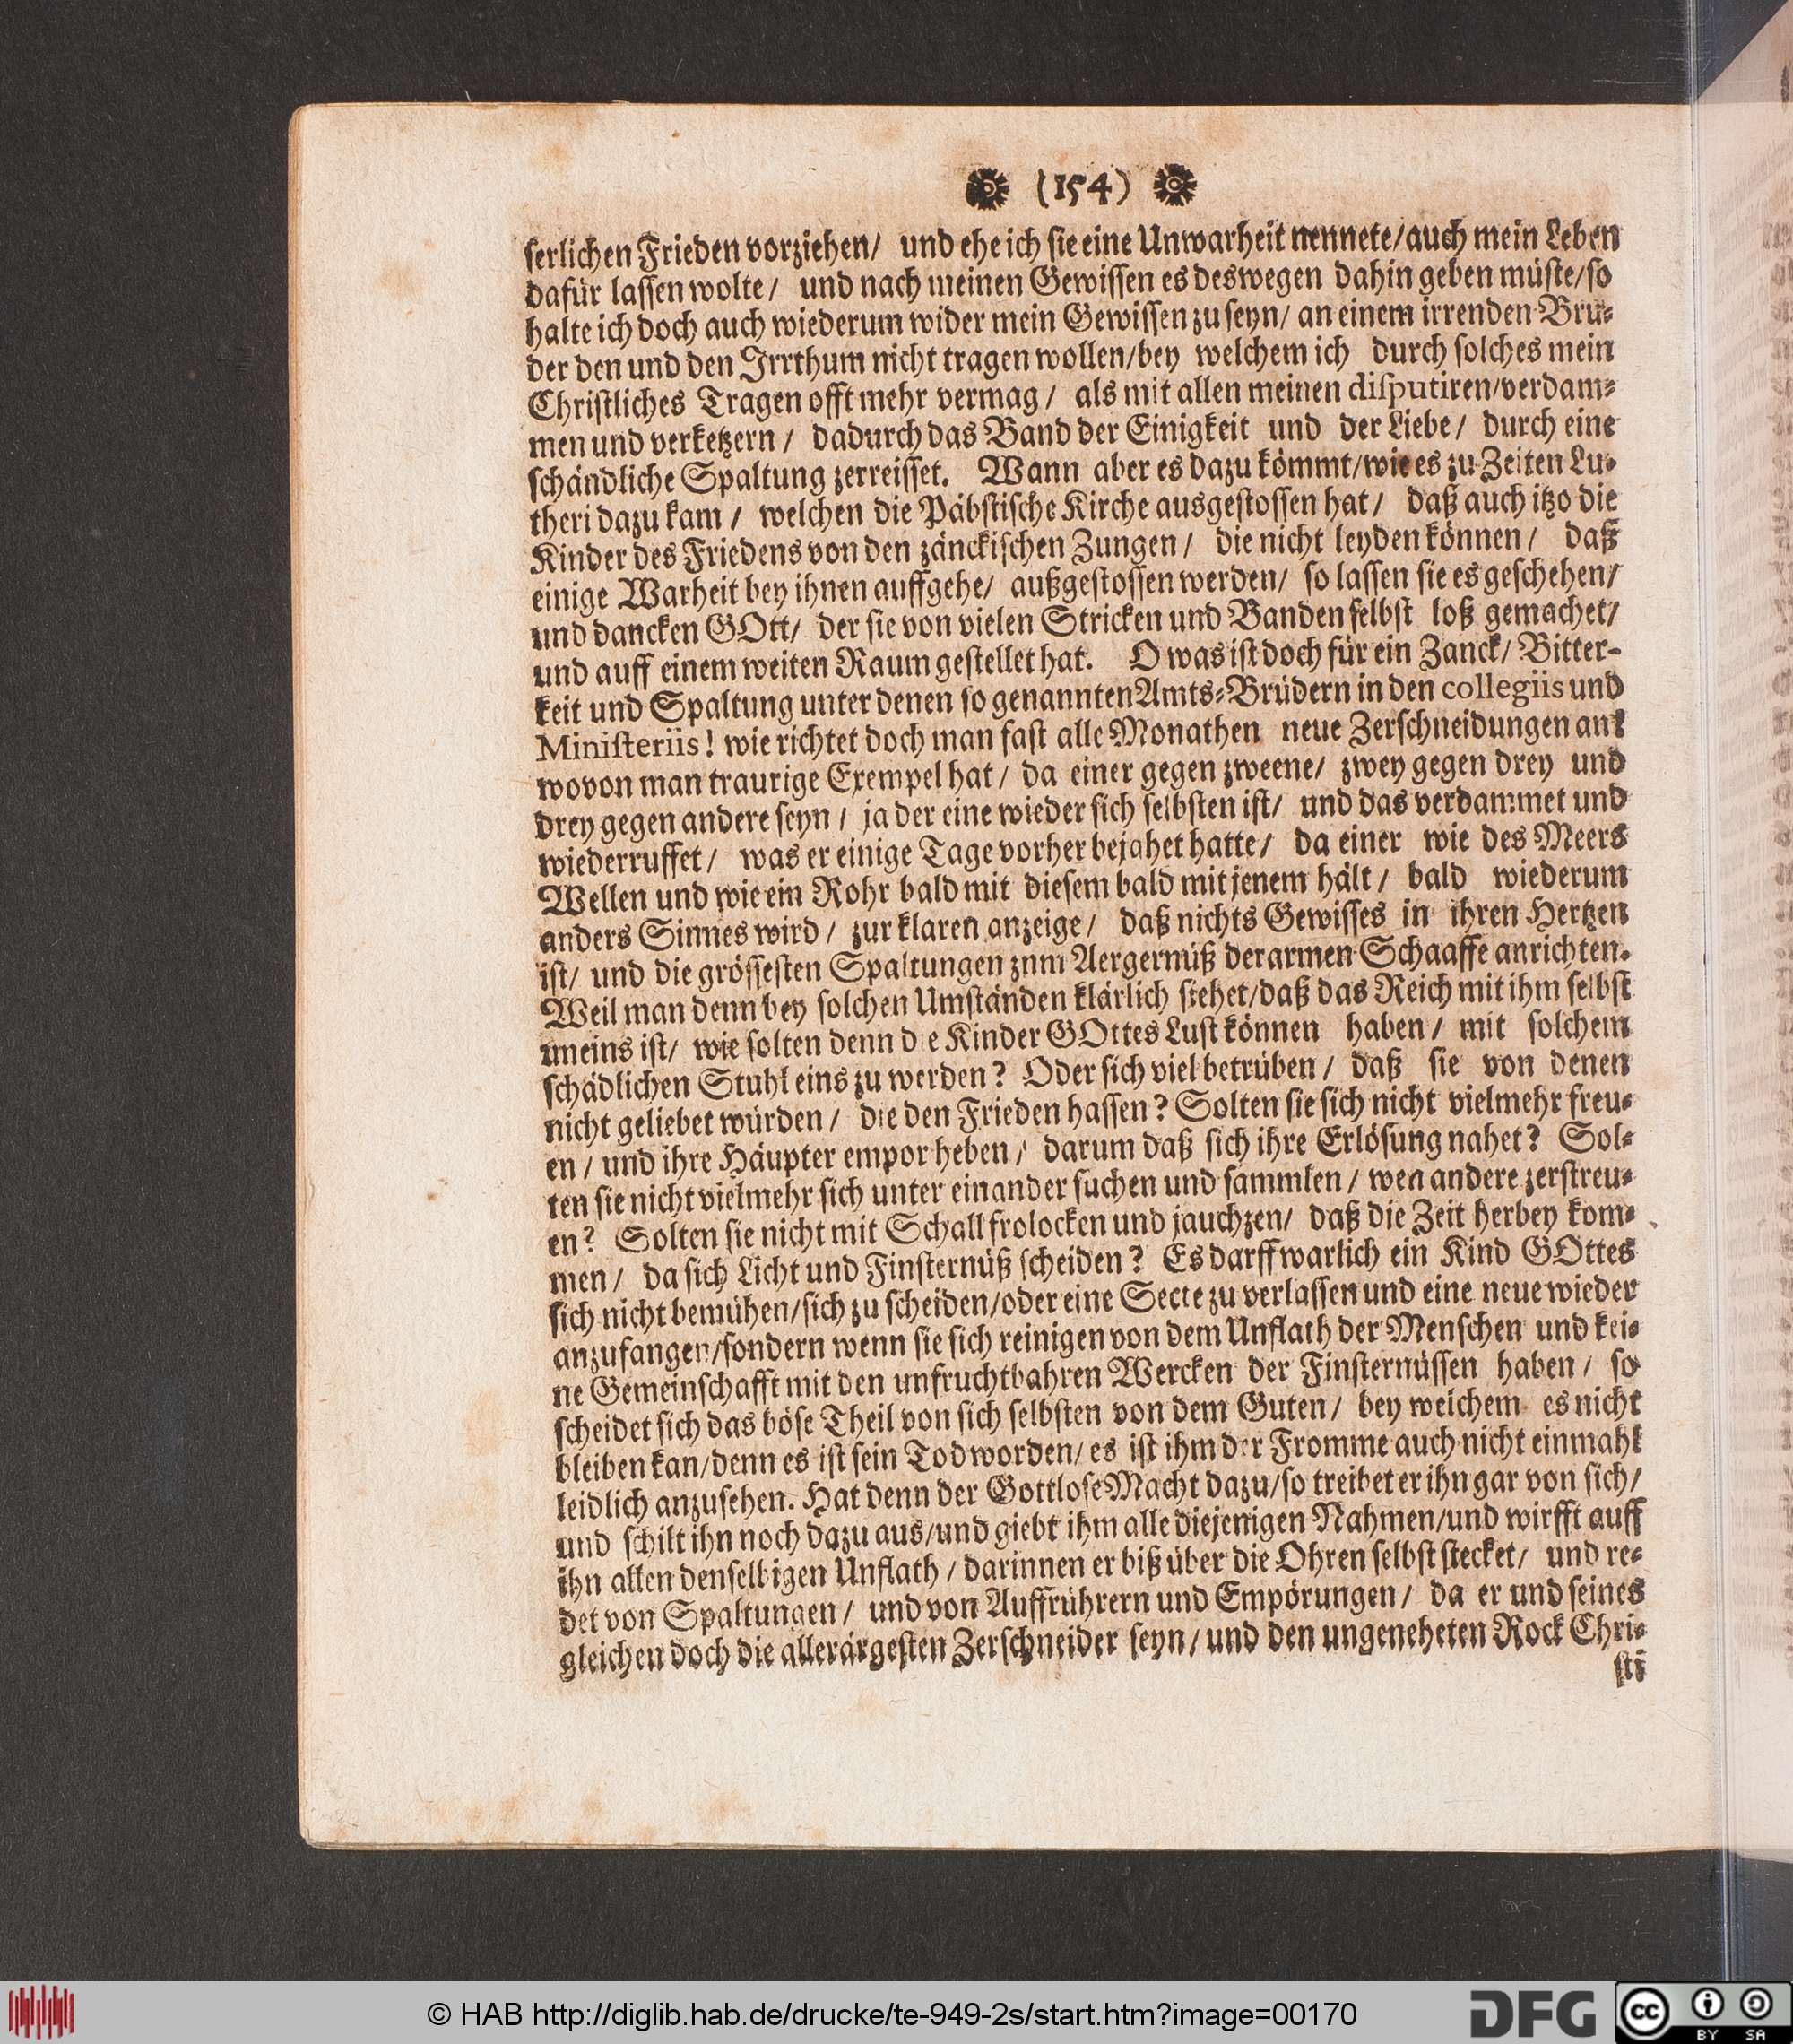 (154)
serlichen Frieden vorziehen/ und ehe ich sie eine Unwarheit nennete/auch mein Leben
dafür lassen wolte/ und nach meinen Gewissen es deswegen dahin geben müste/so
halte ich doch auch wiederum wider mein Gewissen zu seyn/ an einem irrenden Bru-
der den und den Irrthum nicht tragen wollen/bey welchem ich durch solches mein
Christliches Tragen offt mehr vermag/ als mit allen meinen disputiren/verdam-
men und verketzern/ dadurch das Band der Einigkeit und der Liebe/ durch eine
schändliche Spaltung zerreisset. Wann aber es dazu kömmt/wie es zu Zeiten Lu-
theri dazu kam/ welchen die Päbstische Kirche ausgestossen hat/ daß auch itzo die
Kinder des Friedens von den zänckischen Zungen/ die nicht leyden können/ daß
einige Warheit bey ihnen auffgehe/ außgestossen werden/ so lassen sie es geschehen/
und dancken GOtt/ der sie von vielen Stricken und Banden selbst loß gemachet/
und auff einem weiten Raum gestellet hat. O was ist doch für ein Zanck/ Bitter-
keit und Spaltung unter denen so genannten Amts-Brüdern in den collegiis und
Ministeriis! wie richtet doch man fast alle Monathen neue Zerschneidungen an!
wovon man traurige Exempel hat/ da einer gegen zweene/ zwey gegen drey und
drey gegen andere seyn/ ja der eine wieder sich selbsten ist/ und das verdammet und
wiederruffet/ was er einige Tage vorher bejahet hatte/ da einer wie des Meers
Wellen und wie ein Rohr bald mit diesem bald mit jenem hält/ bald wiederum
anders Sinnes wird/ zur klaren anzeige/ daß nichts Gewisses in ihren Hertzen
ist/ und die grössesten Spaltungen znm Aergernüß der armen Schaaffe anrichten.
Weil man denn bey solchen Umständen klärlich siehet/daß das Reich mit ihm selbst
uneins ist/ wie solten denn die Kinder GOttes Lust können haben/ mit solchem
schädlichen Stuhl eins zu werden? Oder sich viel betrüben/ daß sie von denen
nicht geliebet würden/ die den Frieden hassen? Solten sie sich nicht vielmehr freu-
en/ und ihre Häupter empor heben/ darum daß sich ihre Erlösung nahet? Sol-
ten sie nicht vielmehr sich unter einander suchen und sammlen/ wen andere zerstreu-
en? Solten sie nicht mit Schall frolocken und jauchzen/ daß die Zeit herbey kom-
men/ da sich Licht und Finsternüß scheiden? Es darff warlich ein Kind GOttes
sich nicht bemühen/sich zu scheiden/oder eine Secte zu verlassen und eine neue wieder
anzufangen/sondern wenn sie sich reinigen von dem Unflath der Menschen und kei-
ne Gemeinschafft mit den unfruchtbahren Wercken der Finsternüssen haben/ so
scheidet sich das böse Theil von sich selbsten von dem Guten/ bey welchem es nicht
bleiben kan/denn es ist sein Tod worden/ es ist ihm der Fromme auch nicht einmahl
leidlich anzusehen. Hat denn der Gottlose Macht dazu/so treibet er ihn gar von sich/
und schilt ihn noch dazu aus/und giebt ihm alle diejenigen Nahmen/und wirfft auff
ihn allen denselbigen Unflath/ darinnen er biß über die Ohren selbst stecket/ und re-
det von Spaltungen/ und von Auffrührern und Empörungen/ da er und seines
gleichen doch die allerärgesten Zerschneider seyn/ und den ungeneheten Rock Chri-
sti
© HAB http://diglib.hab.de/drucke/te-949-2s/start.htm?image=00170
DFG
cc BY SA